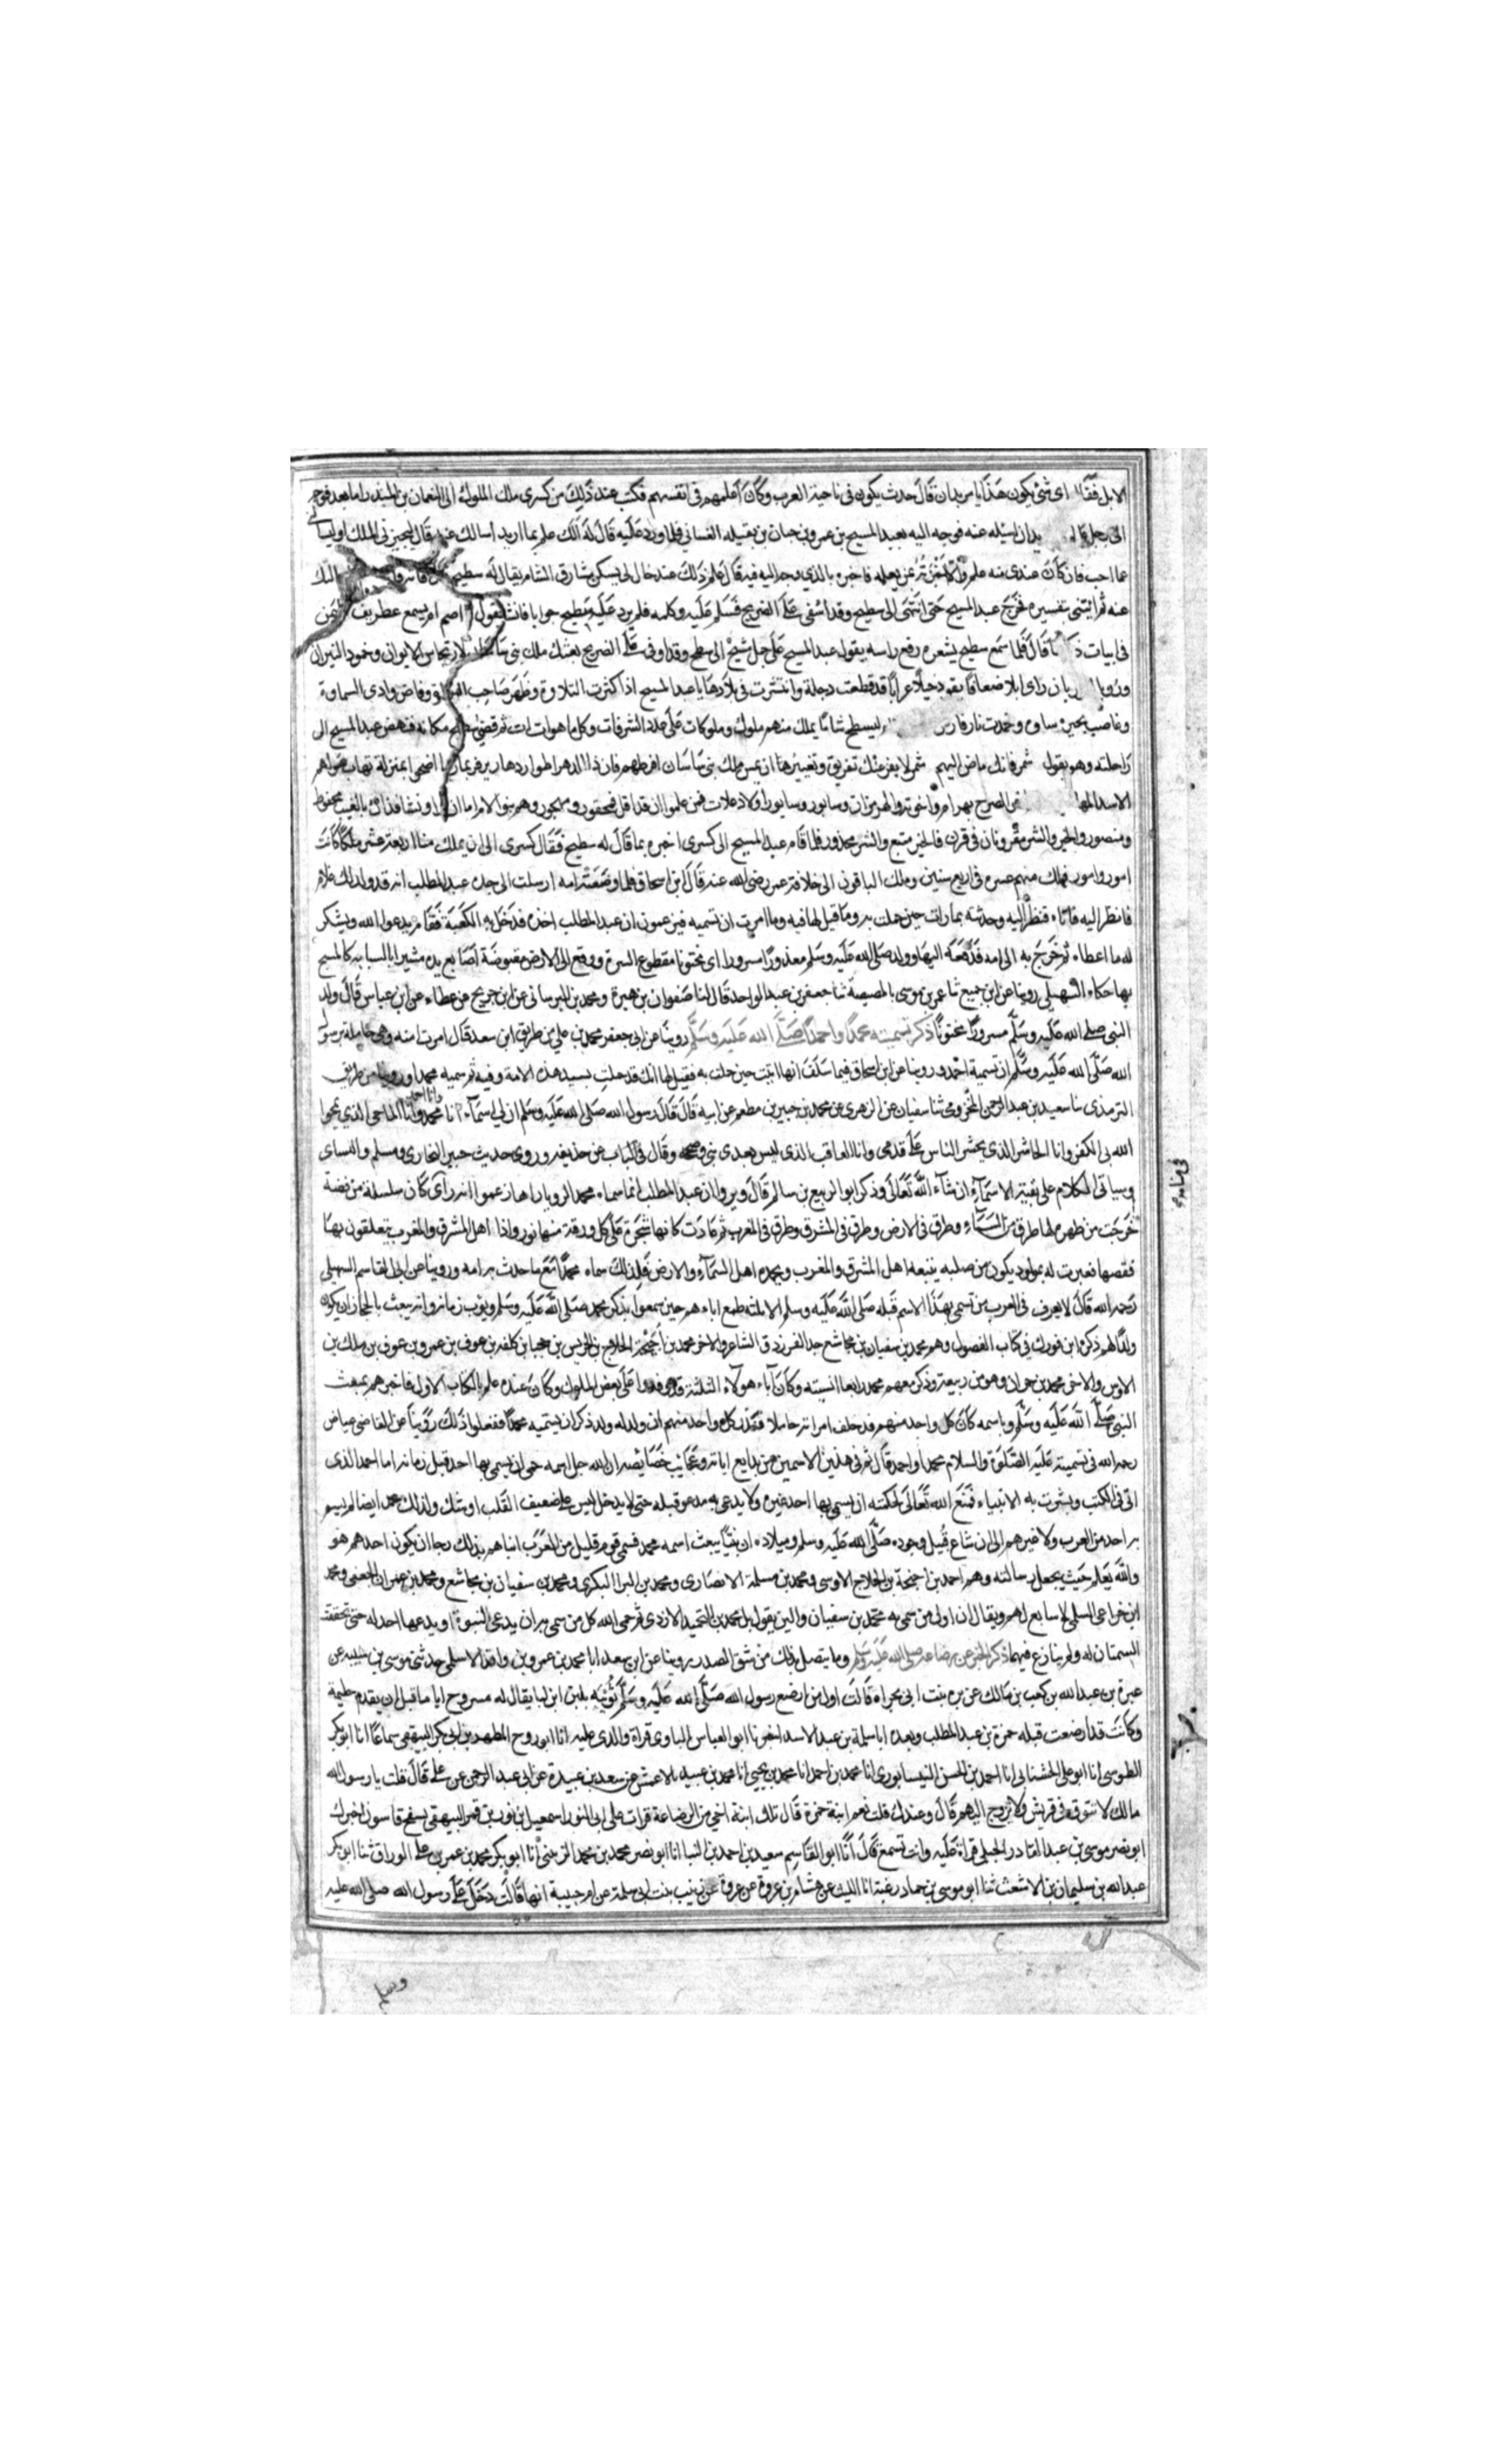 الابل فقال اى شئ يكون هذا يا موبذان قال حدث يكون فى ناحية العرب وكان اعلمهم فى انفسهم فكتب عند ذلك من كسرى ملك الملوك الى النعمان بن المنذر اما بعد فوجه
الى برجل عالم اريد ان اسئله عنه فوجه اليه بعبد المسيح بن عمرو بن حيان بن بقيله الغسانى فلما ورد عليه قال له الك علم بما اريد ان اسالك عنه قال ليخبرنى الملك او ليسالنى
عما احب فان كان عندى منه علم والا اخبرته بمن يعلمه فاخبره بالذي وجه اليه فيه قال علم ذلك عند خال لى يسكن مشارق الشام يقال له سطيح قال فاته فاساله
عنه ثم ائتنى بتفسيره فخرج عبد المسيح حتى انتهى الى سطيح وقد اشفى على الضريح فسلم عليه وكلمه فلم يرد عليه سطيح جوابا فانشا يقول اصم ام يسمع غطريف اليمن
فى ابيات ذكرها قال فلما سمع سطيح بشعره رفع راسه يقول عبد المسيح على جمل مشيح الى سطيح وقد اوفى على الضريح بعثك ملك بنى ساسان لارتجاس الايوان وخمود النيران
ورؤيا الموبذان راى ابلا صعابا تقود خيلا عرابا قد قطعت دجلة وانتشرت فى بلادها يا عبد المسيح اذا كثرت التلاوة وظهر صاحب الهراوة وفاض وادى السماوة
وغاضت بحيرة ساوه وخمدت نار فارس فليس لسطيح شاما يملك منهم ملوك وملوكات على عدد الشرفات وكل ما هو ات ات ثم قضى سطيح مكانه فنهض عبد المسيح الى
راحلته وهو يقول شمر فانك ماضى الهم شمير لا يفزعنك تفريق وتغييرها ان يمس ملك بنى ساسان افرطهم فان ذا الدهر اطوار دهارير فربما ربما اضحوا بمنزلة تهاب صولهم
الاسد المهاصير منهم اخو الصرح بهرام واخوته والهرمزان وسابور وسابورا ولاد علات فمن علموا ان قد اقل فمحقور ومهجور وهم بنو الام اما ان راو نشبا فذاك بالغيب محفوظ
ومنصور والخير والشر مقرونان فى قرن فالخير متبع والشر محذور فلما قدم عبد المسيح الى كسرى اخبره بما قال له سطيح فقال كسرى الى ان يملك منا اربعة عشر ملكا كانت
امور وامور فملك منهم عشره فى اربع سنين وملك الباقون الى خلافة عمر رضى الله عنه قال ابن اسحاق فلما وضعته امه ارسلت الى جده عبد المطلب انه قد ولد لك غلام
فانظر اليه فاتاه فنظر اليه وحدثته بما رات حين حملت به وما قيل لها فيه وما امرت ان تسميه فيزعمون ان عبد المطلب اخذه فدخل به الكعبة فقام يدعو الله ويشكر
له ما اعطاه ثم خرج به الى امه فدفعه اليها وولد صلى الله عليه وسلم معذورا مسرورا اى مختونا مقطوع السرة ووقع الى الارض مقبوضة اصابع يده مشيرا بالسبابه كالمسبح
بها حكاه السهيلى روينا عن ابن جميع ثنا عمر بن موسى بالمصيصة ثنا جعفر بن عبد الواحد قال لنا صفوان بن هبيرة ومحمد بن البرسانى عن ابن جريج عن عطاء عن ابن عباس قال ولد
النبى صلى الله عليه وسلم مسرورا مختونا ذكر تسميته محمدا واحمدا صلى الله عليه وسلم روينا عن ابى جعفر محمد بن على من طريق ابن سعد قال امرت امنه وهى حاملة برسول
الله صلى الله عليه وسلم ان تسميه احمد وروينا عن ابن اسحاق فيما سلف انها اتيت حين حملت به فقيل لها انك قد حملت بسيد هذه الامة وفيه ثم سميه محمدا وروينا من طريق
الترمذى ثنا سعيد بن عبد الرحمن المخزومى ثنا سفيان عن الزهرى عن محمد بن جبير بن مطعم عن ابيه قال قال رسول الله صلى الله عليه وسلم ان لى اسماء انا محمد وانا احمد وانا الماحى الذي يمحوا
الله بى الكفر وانا الحاشر الذى يحشر الناس على قدمى وانا العاقب الذى ليس بعدى نبى وصححه وقال فى الباب عن حذيفه وروى حديث جبير البخارى ومسلم والنساى
وسياتى الكلام على بقية الاسماء ان شاء الله تعالى وذكر ابو الربيع بن سالم قال ويروا ان عبد المطلب انما سماه محمدا لرويا راها زعموا انه راى كان سلسلة من فضة
خرجت من ظهره لها طرف من السماء وطرف فى الارض وطرف فى المشرق وطرف فى المغرب ثم عادت كانها شجرة على كل ورقة منها نور واذا اهل المشرق والمغرب يتعلقون بها
فقصها فعبرت له بمولود يكون من صلبه يتبعه اهل المشرق والمغرب ويحمده اهل السماء والارض فلذلك سماه محمدا مع ما حدثته به امه وروينا عن ابى القاسم السهيلى
رحمه الله قال لا يعرف فى العرب من تسمى بهذا الاسم قبله صلى الله عليه وسلم الا ثلثه طمع اباءهم حين سمعوا بذكر محمد صلى الله عليه وسلم وبقرب زمانه وانه يبعث بالحجاز ان يكون
ولدا لهم ذكرهم ابن فورك فى كتاب الفصول وهم محمد بن سفيان بن مجاشع جد الفرزدق الشاعر والاخر محمد بن احيحة بن الجلاح بن الحريس بن جحجبا بن كلفه بن عوف بن عمرو بن عوف بن ملك بن
الاوس والاخر محمد بن حمران وهو من ربيعة وذكر معهم محمدا رابعا انسيته وكان آباء هولاء الثلثة قد وفدوا على بعض الملوك وكان عنده علم بالكتاب الاول فاخبرهم بمبعث
النبى صلى الله عليه وسلم وباسمه كان كل واحد منهم قد خلف امراته حاملا فنذر كل واحد منهم ان ولد له ولد ذكر ان يسميه محمدا ففعلوا ذلك روينا عن القاضى عياض
رحمه الله فى تسميته عليه الصلوة والسلام محمدا واحمد قال ثم فى هذين الاسمين من بدايع اياته وعجايب خصايصه ان الله جل اسمه حمى ان يسمى بهما احد قبل زمانه اما احمد الذى
اتى فى الكتب وبشرت به الانبياء فمنع الله تعالى لحكمته ان يسمى بها احد غيره ولا يدعى به مدعو قبله حتى لا يدخل ليس على ضعيف القلب او شك وكذلك محمد ايضا لم يسم
به احد من العرب ولا غيرهم الى ان شاع قبيل وجوده صلى الله عليه وسلم وميلاده ان نبيا يبعث اسمه محمد فسمى قوم قليل من العرب ابناهم بذلك رجا ان يكون احدهم هو
والله يعلم حيث يجعل رسالته وهم احمد بن احيحة بن الجلاح الاوسى ومحمد بن مسلمة الانصارى ومحمد بن البرا البكرى ومحمد بن سفيان بن مجاشع ومحمد بن عمران الجعفى ومحمد
ابن خزاعى السلمى لا سابع لهم ويقال ان اول من سمى به محمد بن سفيان واليمن يقول بل محمد بن اليحمد الازدى ثم حمى الله كل من سمى به ان يدعى النبوة او يدعيها احد له حتى تحققت
السمتان له ولم ينازع فيهما ذكر الخبر عن رضاعه صلى الله عليه وسلم وما يتصل بذلك من شق الصدر روينا عن ابن سعد انا محمد بن عمرو بن واقد الاسلمى حدثنى موسى بن شيبه عن
عميرة بن عبد الله بن كعب بن مالك عن بره بنت ابى تجراه قالت اول من ارضع رسول الله صلى الله عليه وسلم ثويبه بلبن ابن لها يقال له مسروح اياما قبل ان يقدم حليمة
وكانت قد ارضعت قبله حمزة بن عبد المطلب وبعده ابا سلمة بن عبد الاسد اخبرنا ابو العباس الساوى قراة والدى عليه انا ابو روح المطهر بن ابى بكر البيهقى سماعا انا ابو بكر
الطوسى انا ابو على الخشنابى انا احمد بن الحسن النيسابورى انا محمد بن احمد انا محمد بن يحيى انا محمد بن عبيد الاعمش عن سعد بن عبيدة عن ابى عبد الرحمن عن على قال قلت يا رسول الله
مالك لا تتوق فى قريش ولا تزوج اليهم قال وعندك قلت نعم ابنة حمزة قال تلك ابنة اخى من الرضاعة قرات على ابى النور اسمعيل بن نور بن قمر الهيتى بسفح قاسون اخبرك
ابو نصر موسى بن عبد القادر الجيلى قراة عليه وانت تسمع قال انا ابو القاسم سعيد بن احمد بن البنا انا ابو نصر محمد بن محمد الزينبى انا ابو بكر محمد بن عمر بن على الوراق ثنا ابو بكر
عبد الله بن سليمان بن الاشعث ثنا ابو موسى بن حماد زغبة انا الليث عن هشام بن عروة عن عروة عن زينب بنت ابى سلمة عن ام حبيبة انها قالت دخل على رسول الله صلى الله عليه
وسلم